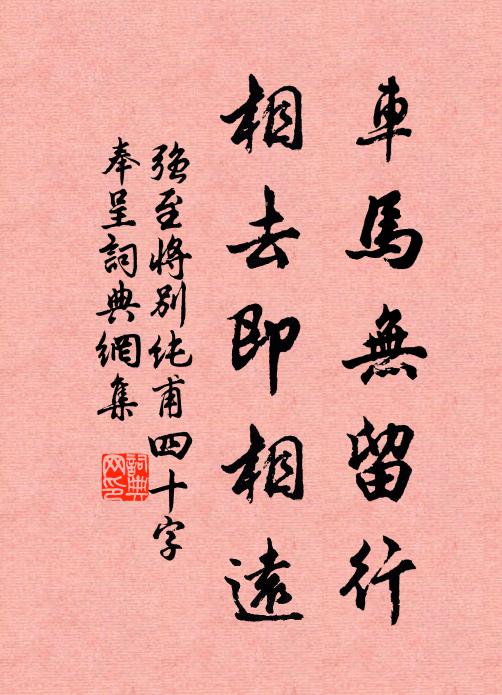 車馬無留行
相去即相遠
強至將別純甫四十字
奉呈詞典網集
詞典
網印